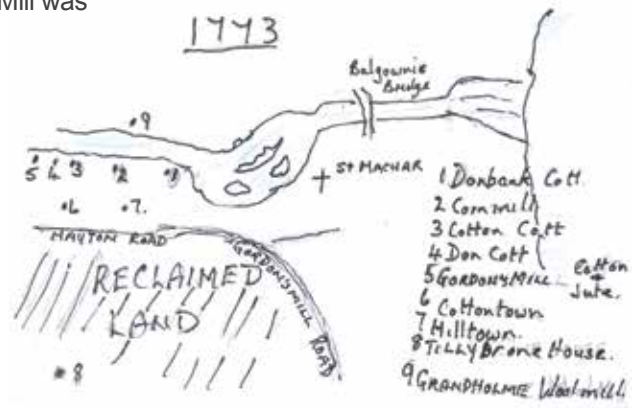 Mill was
1773
Balgownie
Bridge
•9
5 4 •3 •2 •1
+ ST MACHAR
•6 •7.
HAYTON ROAD
GORDONSMILL ROAD
RECLAIMED
LAND
•8
1 Donbank Cott.
2 Cornmill
3 Cotton Cott
4 Don Cott
5 GORDONSMILL - Cotton
+
Jute.
6 Cottontown
7 Hilltown.
8 TILLYDrone House.
9 GRANDHOLME Woolmill